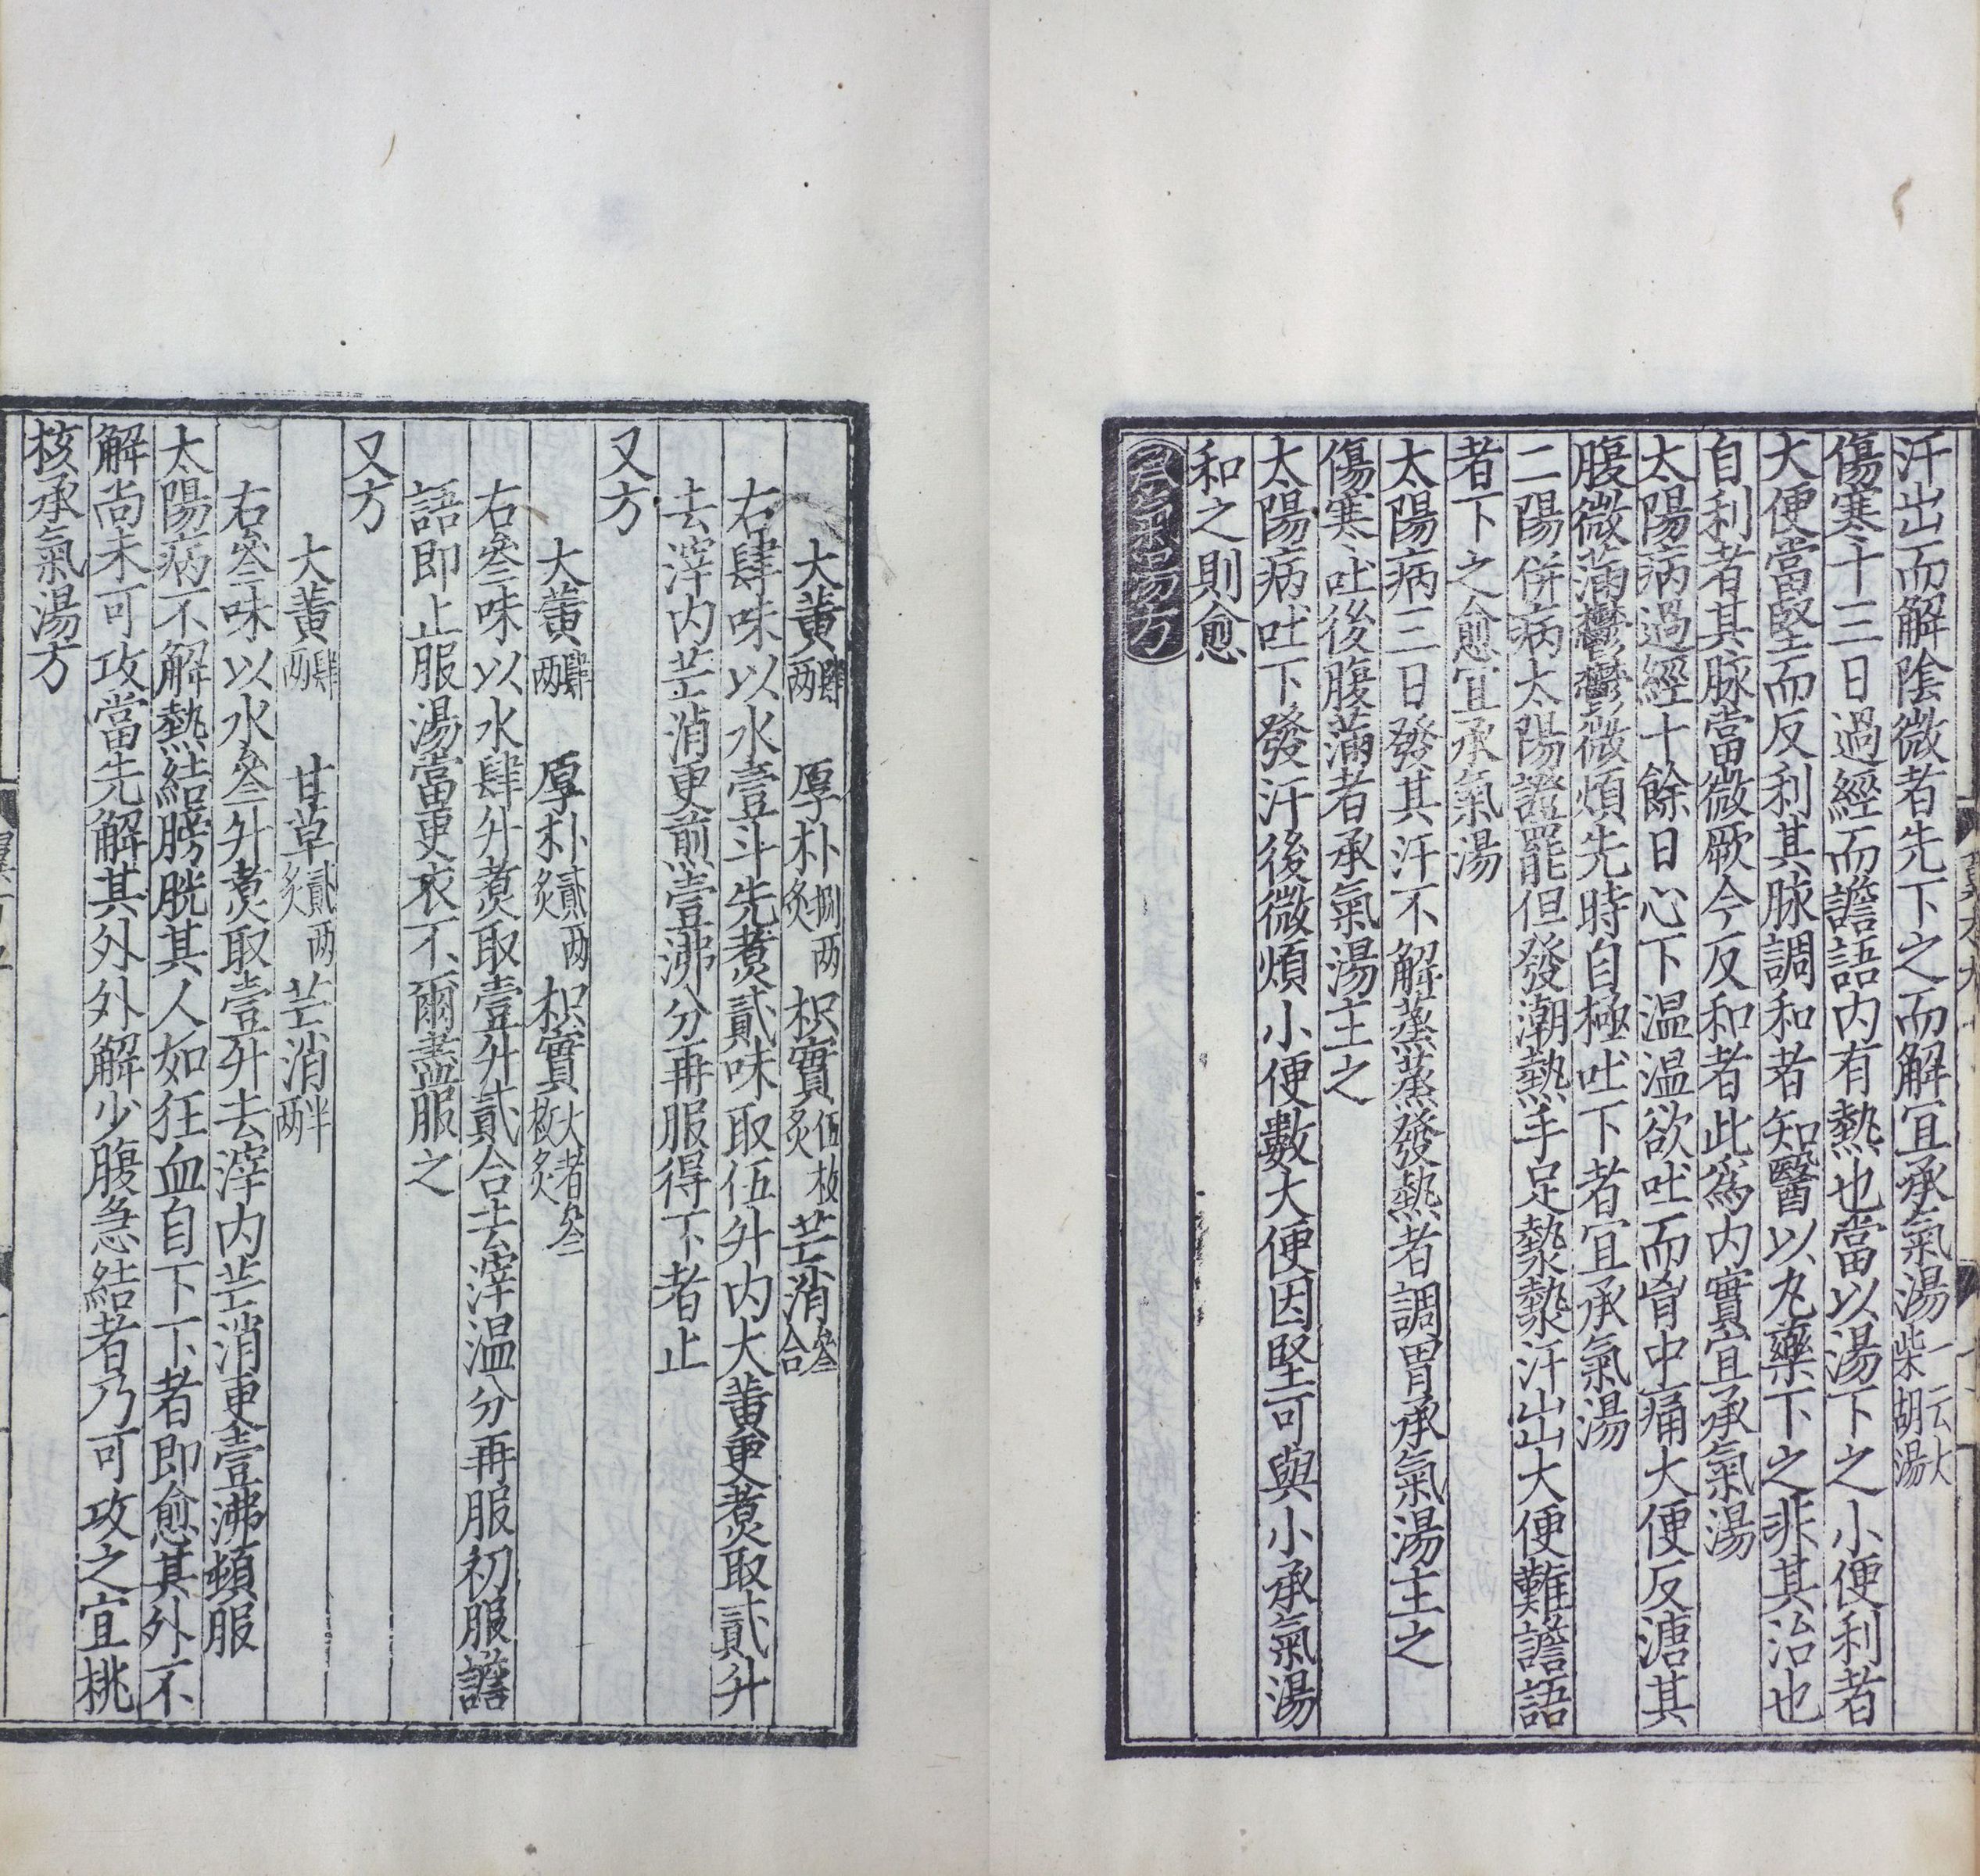 汗出而解陰微者先下之而解宜承氣湯一云大柴胡湯
傷寒十三日過經而讝語内有熱也當以湯下之小便利者
大便當堅而反利其脉調和者知醫以丸藥下之非其治也
自利者其脉當微厥今反和者此爲内實宜承氣湯
太陽病過經十餘日心下温温欲吐而胷中痛大便反溏其
腹微滿鬱鬱微煩先時自極吐下者宜承氣湯
二陽併病太陽證罷但發潮熱手足漐漐汗出大便難讝語
者下之愈宜承氣湯
太陽病三日發其汗不解蒸蒸發熱者調胃承氣湯主之
傷寒吐後腹滿者承氣湯主之
太陽病吐下發汗後微煩小便數大便因堅可與小承氣湯
和之則愈
承氣湯方
大黄肆兩 厚朴捌兩炙 枳實伍枚炙 芒消叁合
右肆味以水壹斗先煑貳味取伍升内大黄更煑取貳升
去滓内芒消更煎壹沸分再服得下者止
又方
大黄肆兩 厚朴貳兩炙 枳實大者叁枚炙
右叁味以水肆升煑取壹升貳合去滓温分再服初服讝
語即止服湯當更衣不爾盡服之
又方
大黄肆兩 甘草貳兩炙 芒消半兩
右叁味以水叁升煑取壹升去滓内芒消更壹沸頓服
太陽病不解熱結膀胱其人如狂血自下下者即愈其外不
解尚未可攻當先解其外外解少腹急結者乃可攻之宜桃
核承氣湯方